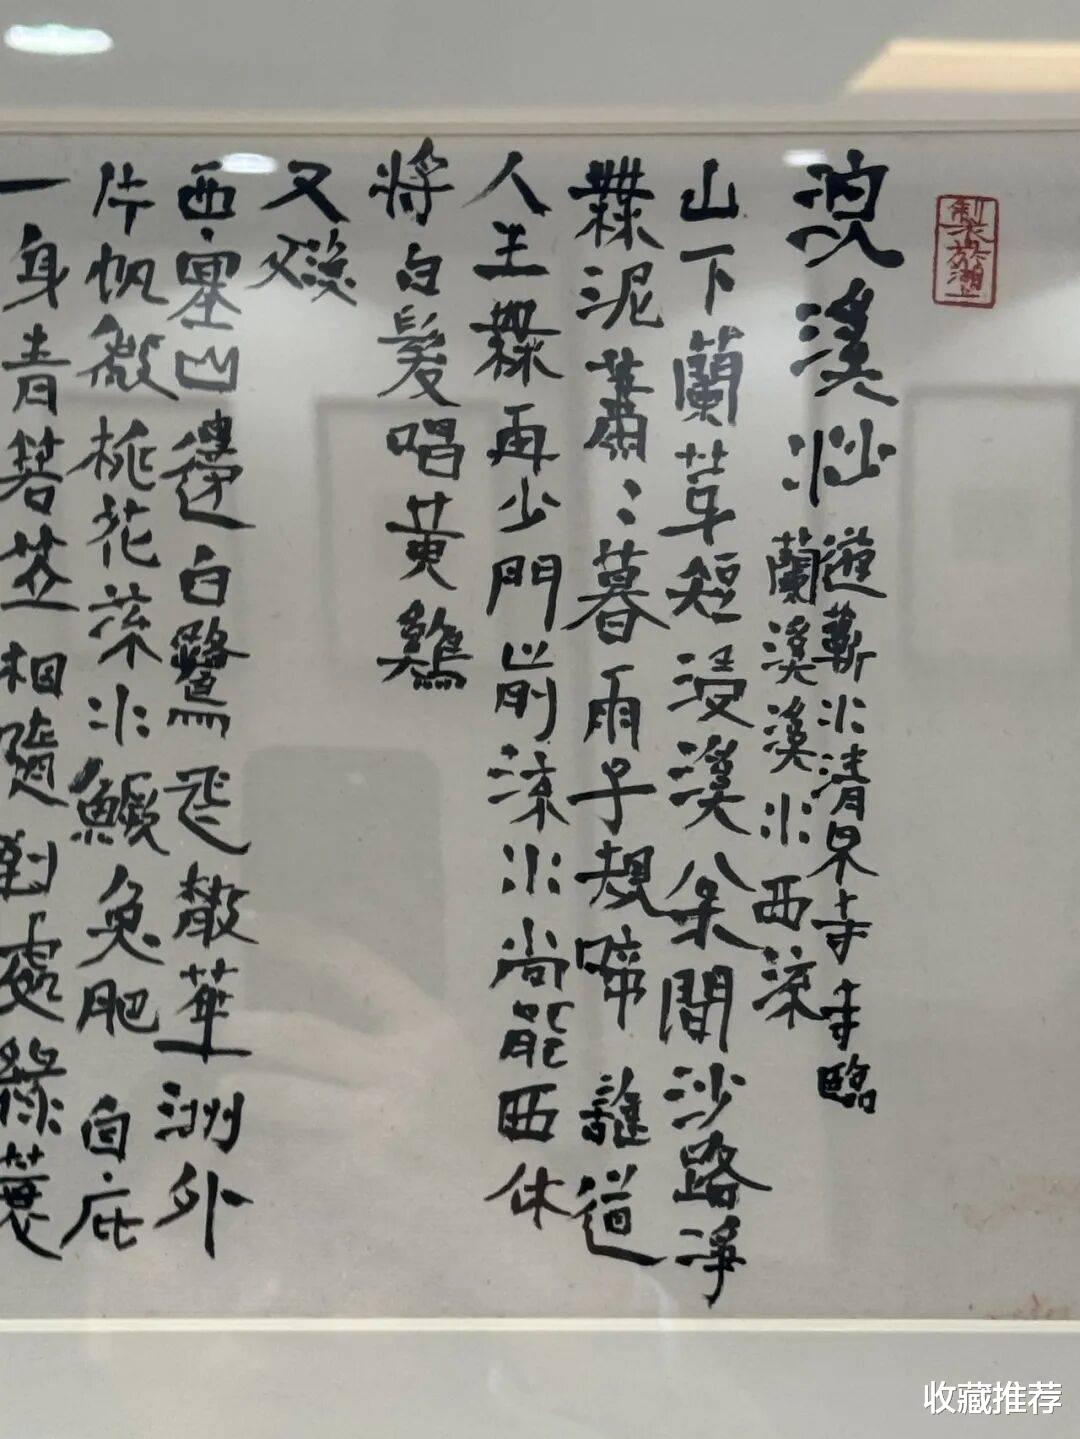 浣溪沙
遊蘄水清泉寺寺臨
蘭溪溪水西流
山下蘭芽短浸溪松間沙路淨
無泥蕭〻暮雨子規啼誰道
人生無再少門前流水尚能西休
將白髮唱黄雞
又
西塞山邊白鷺飛散華洲外
片帆微桃花流水鱖魚肥自庇
一身青箬笠相隨到處綠蓑
收藏推荐